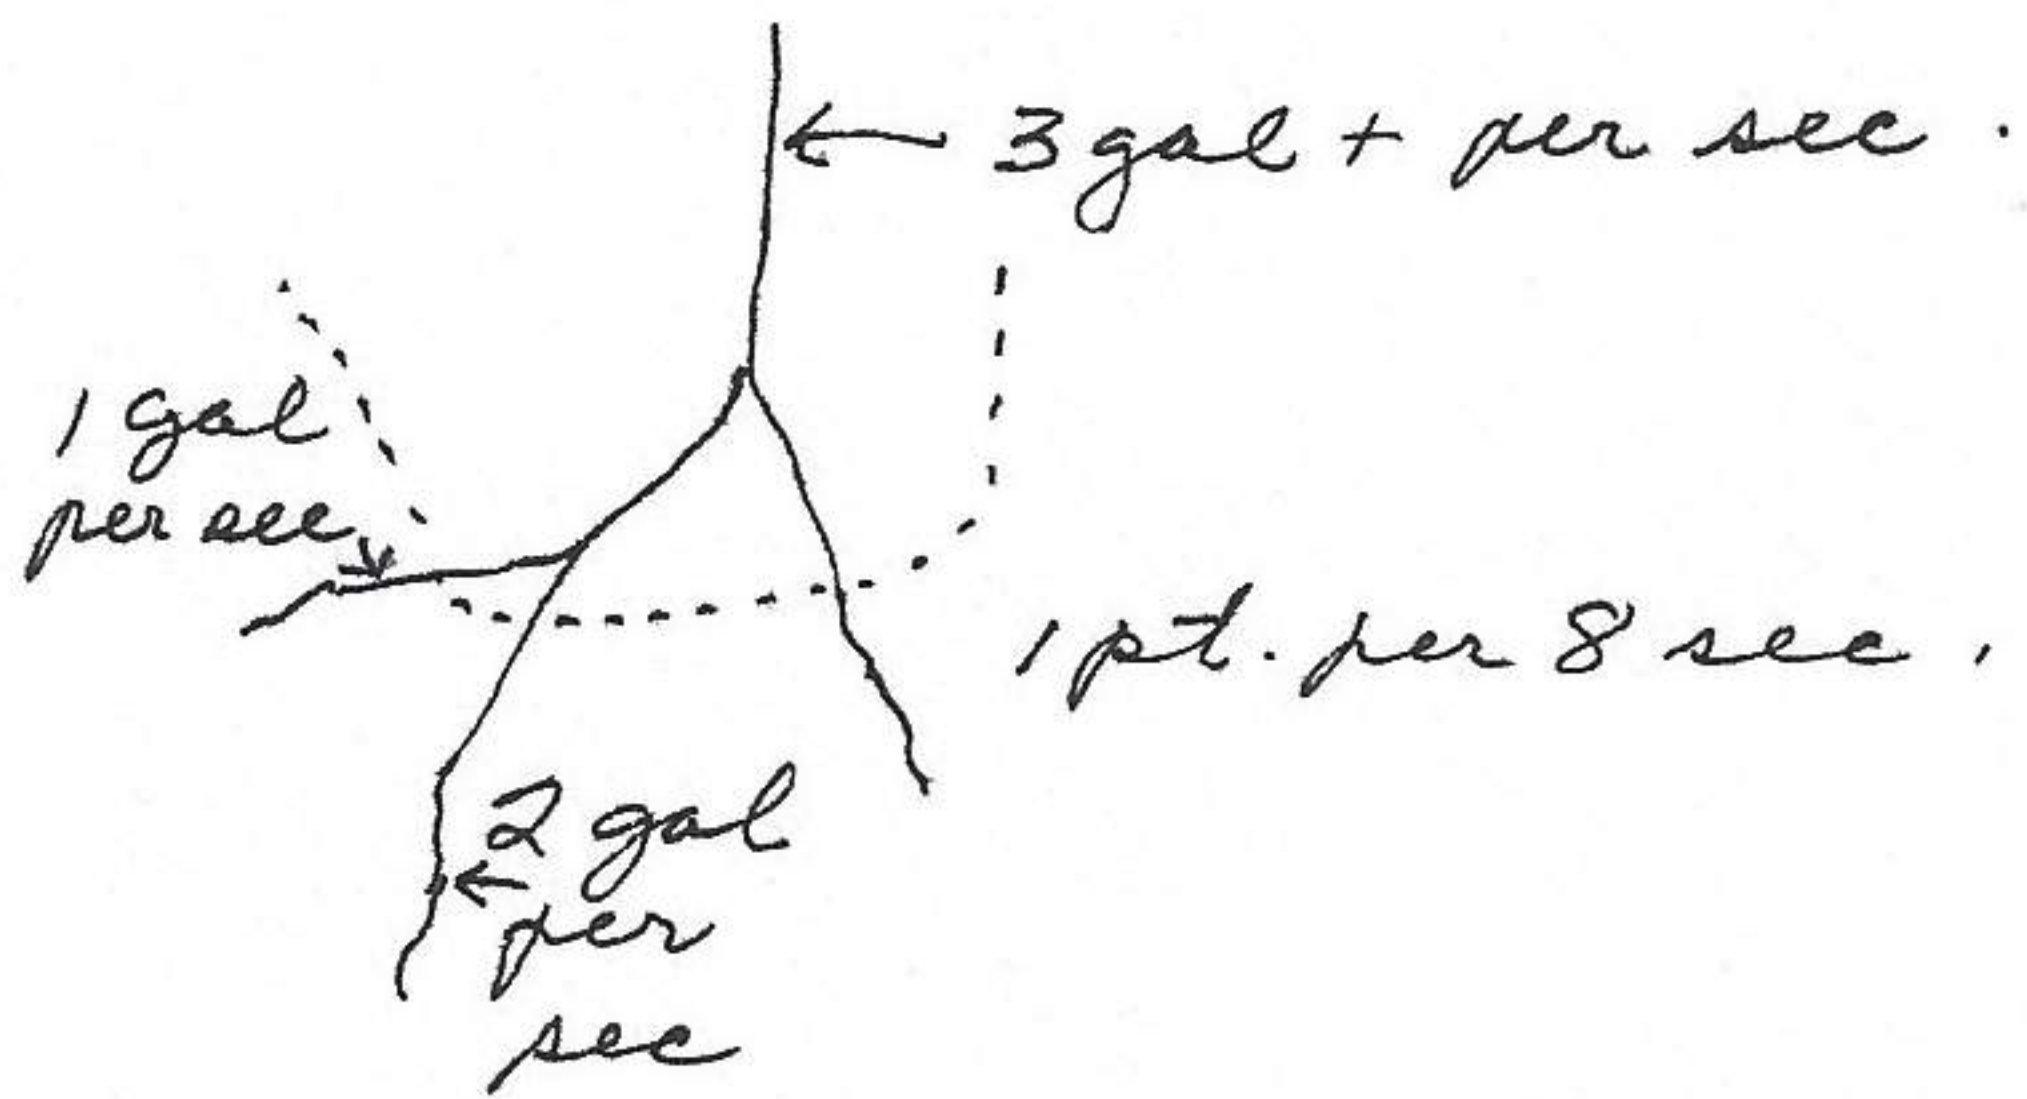 3 gal + per sec.
1 gal
per sec
1 pt. per 8 sec.
2 gal
per
sec